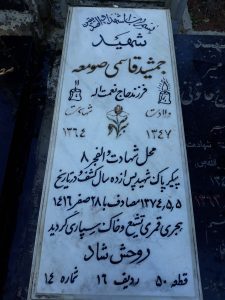 شهید
جمشید قاسمی صومعه
فرزند حاج نعمت اله
ولادت شهادت
۱۳۴۷ ۱۳۶۴
محل شهادت والفجر ۸
پیکر پاک شهید پس از ده سال کشف و در تاریخ
۱۳۷۴,۵,۵ مصادف با ۲۸ صفر ۱۴۱۶
هجری قمری تشییع و خاک سپاری گردید
روحش شاد
قطعه ۵۰ ردیف ۱۶ شماره ۱۴